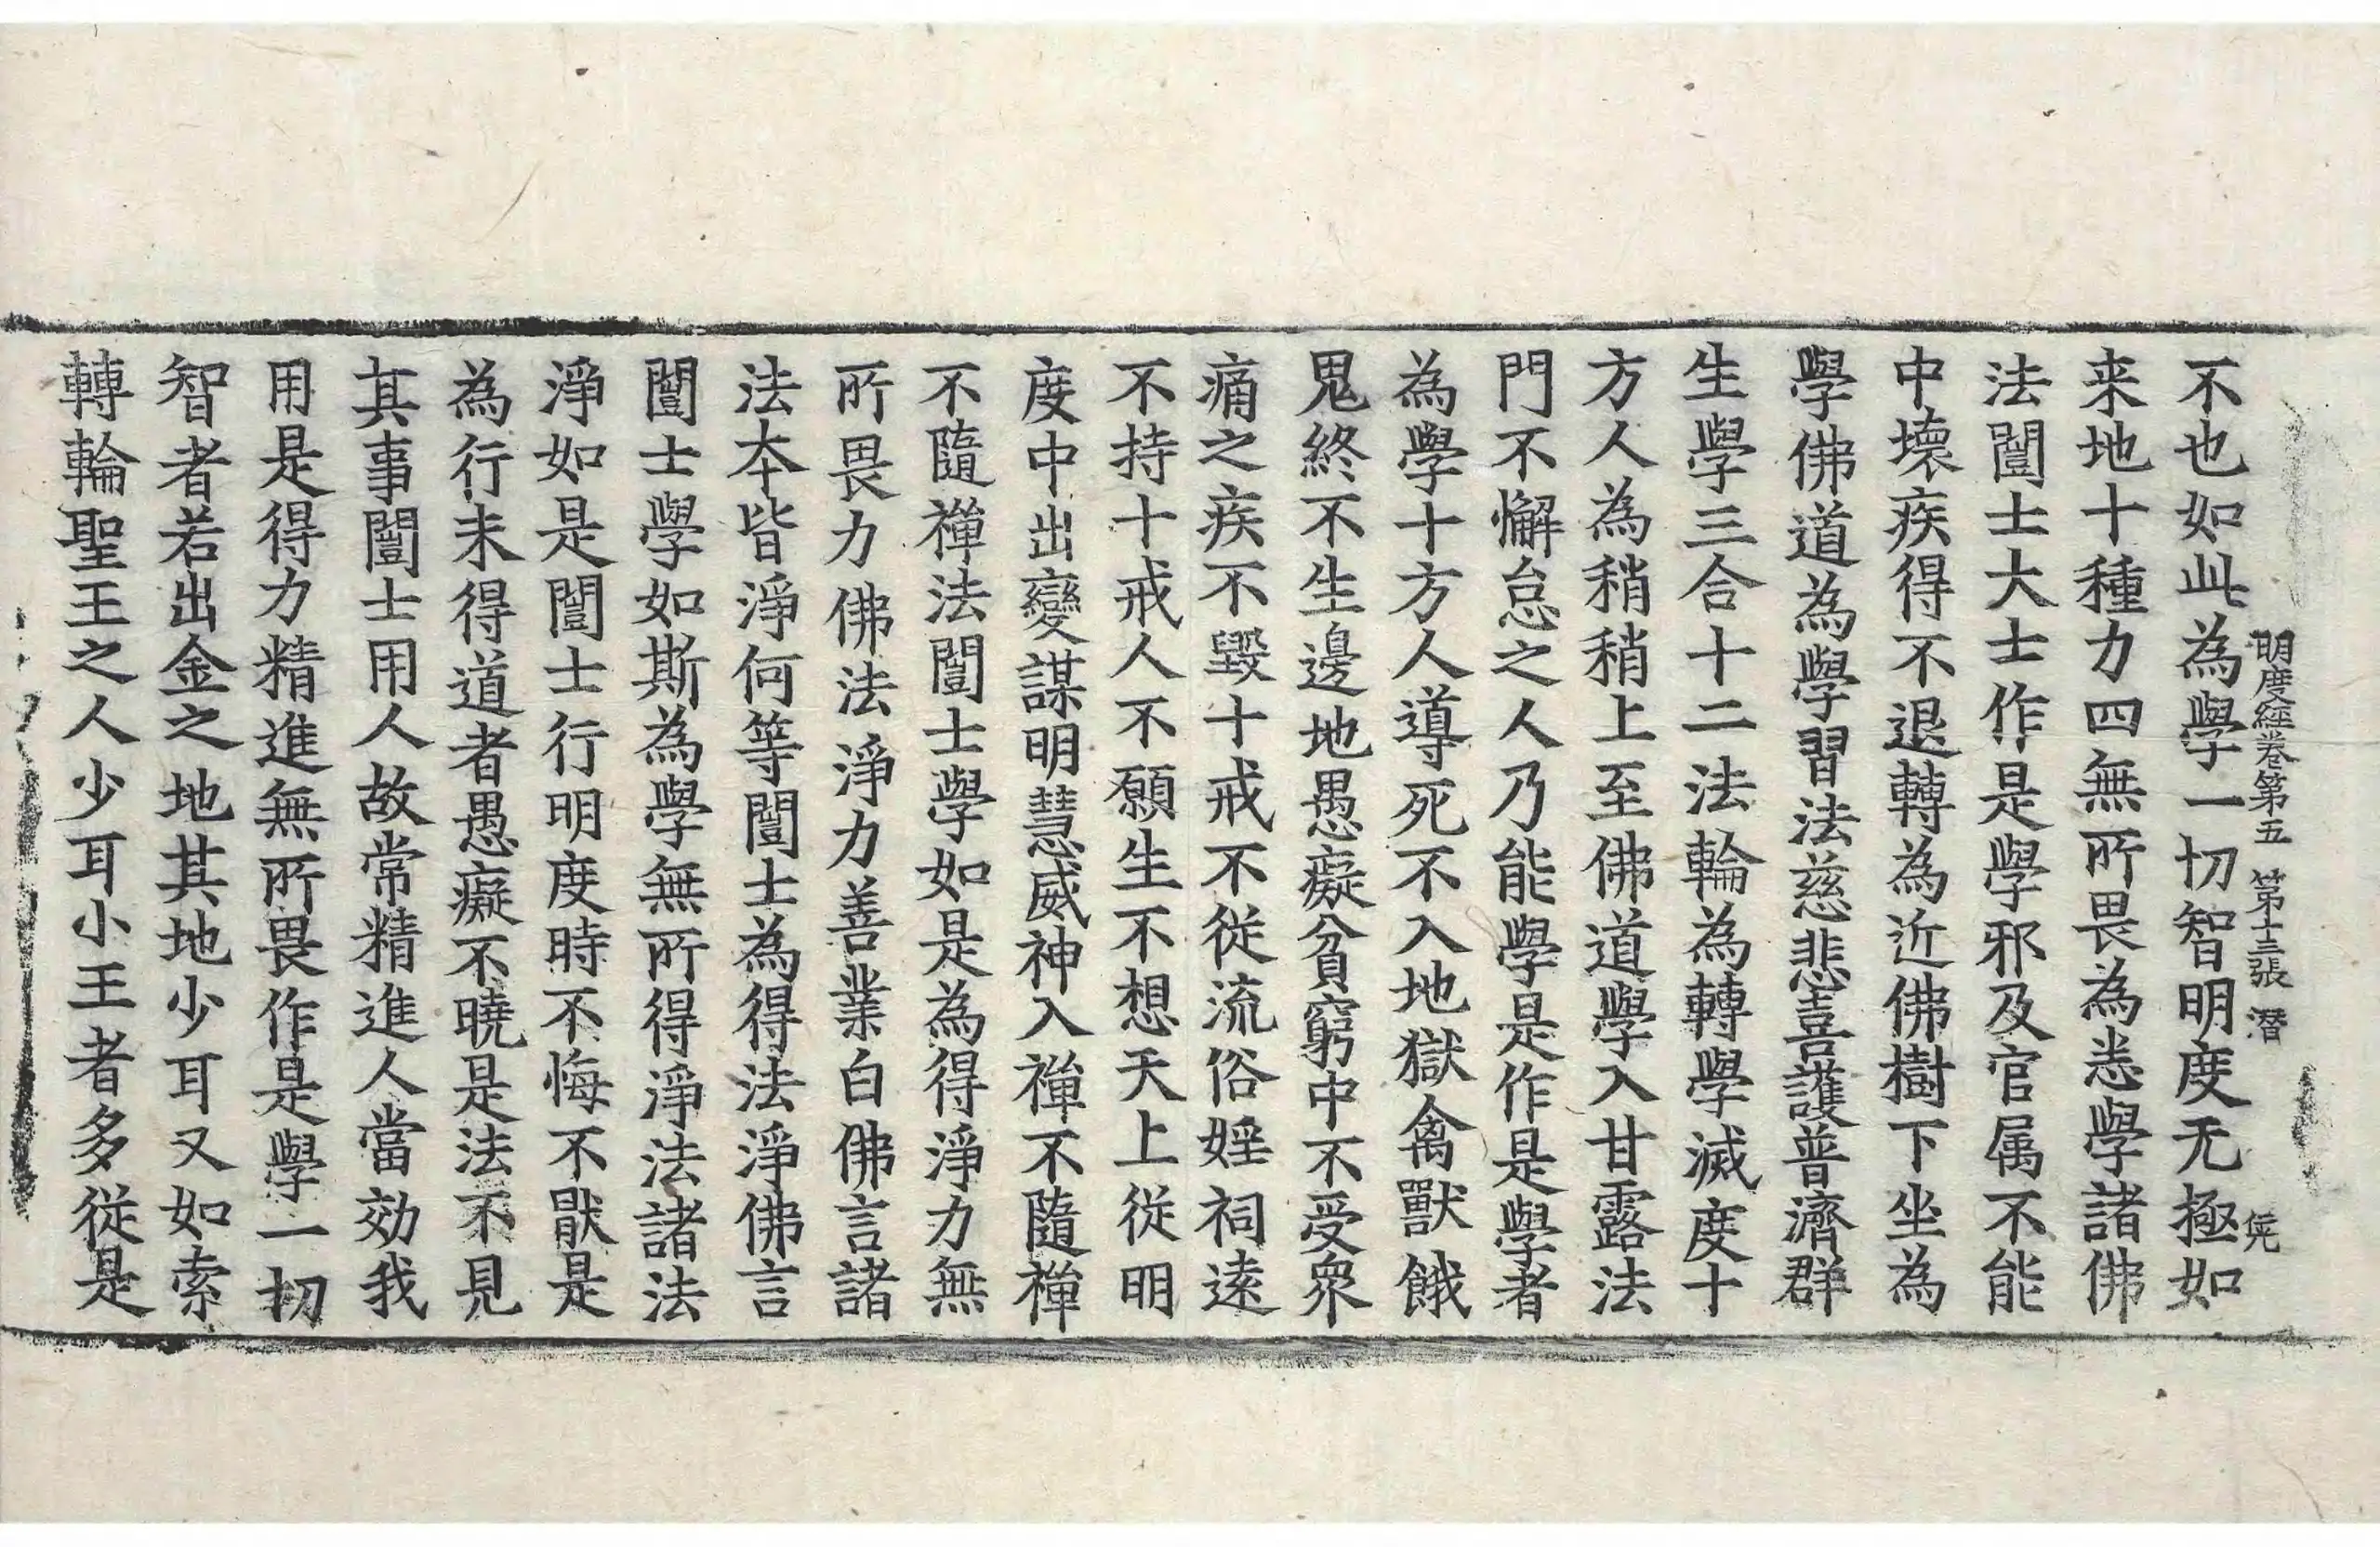 明度經卷第五　第十三張　潜
不也如此為學一切智明度无極如
来地十種力四無所畏為悉學諸佛
法闓士大士作是學邪及官属不能
中壞疾得不退轉為近佛樹下坐為
學佛道為學習法慈悲喜護普濟群
生學三合十二法輪為轉學滅度十
方人為稍稍上至佛道學入甘露法
門不懈怠之人乃能學是作是學者
為學十方人導死不入地獄禽獸餓
鬼終不生邊地愚癡貧窮中不受眾
痛之疾不毀十戒不從流俗婬祠遠
不持十戒人不願生不想天上從明
度中出變謀明慧威神入禪不隨禪
不隨禪法闓士學如是為得淨力無
所畏力佛法淨力善業白佛言諸
法本皆淨何等闓士為得法淨佛言
闓士學如斯為學無所得淨法諸法
淨如是闓士行明度時不悔不厭是
為行未得道者愚癡不曉是法不見
其事闓士用人故常精進人當効我
用是得力精進無所畏作是學一切
智者若出金之地其地少耳又如索
轉輪聖王之人少耳小王者多從是